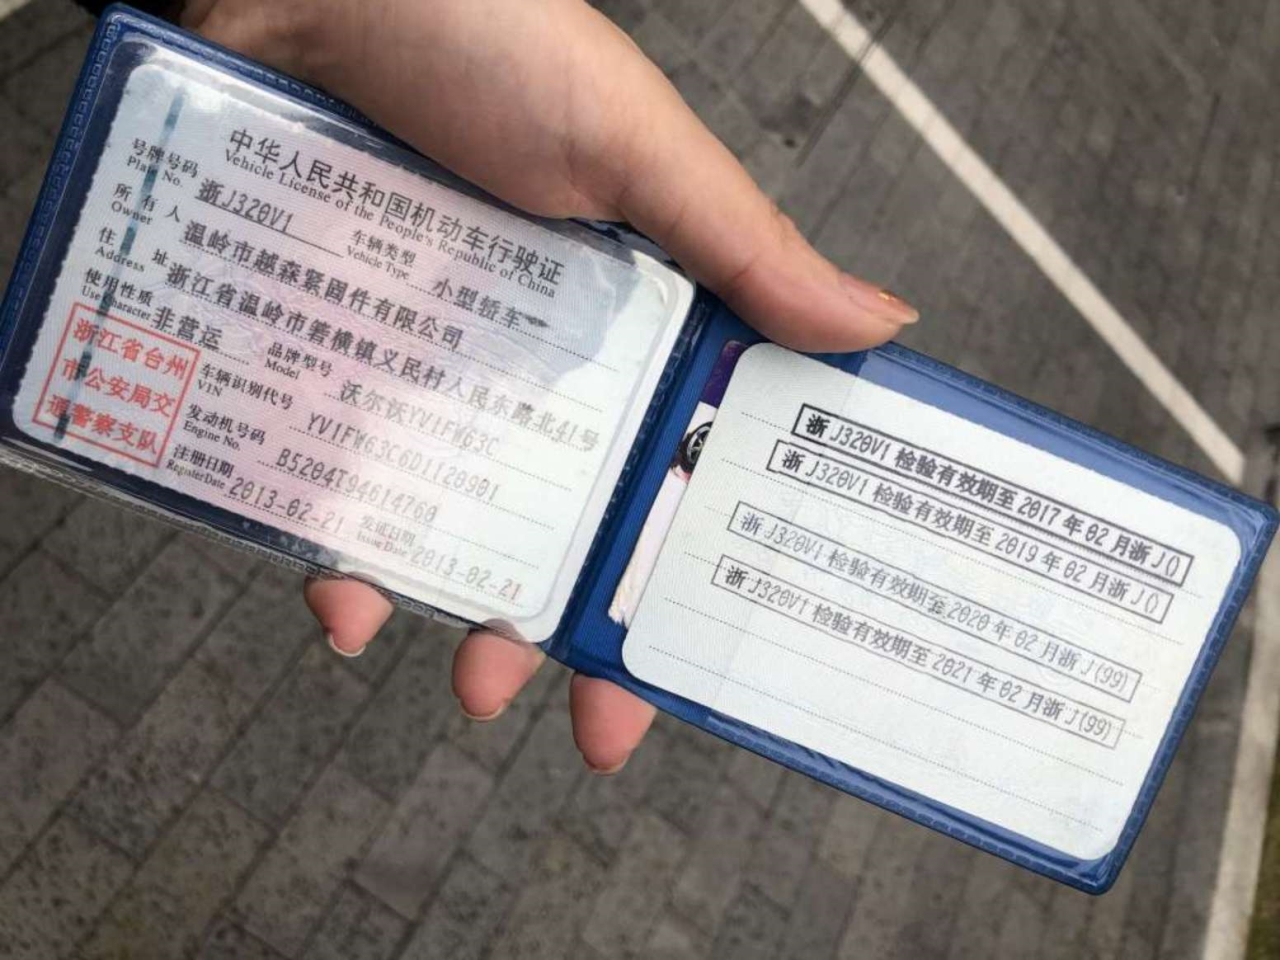 中华人民共和国机动车行驶证
Vehicle License of the People's Republic of China
号牌号码 浙J320V1 车辆类型 小型轿车
Plate No. Vehicle Type
所有人 温岭市越森紧固件有限公司
Owner
住址 浙江省温岭市箬横镇义民村人民东路北41号
Address
使用性质 非营运 品牌型号 沃尔沃YV1FW63C
Use Character Model
浙江省台州
市公安局交
通警察支队
车辆识别代号 YV1FW63C6D1120901
VIN
发动机号码 B5204T94614760
Engine No.
注册日期 2013-02-21 发证日期 2013-02-21
Register Date Issue Date
浙J320V1 检验有效期至 2017年02月浙J()
浙J320V1 检验有效期至 2019年02月浙J()
浙J320V1 检验有效期至 2020年02月浙J(99)
浙J320V1 检验有效期至 2021年02月浙J(99)